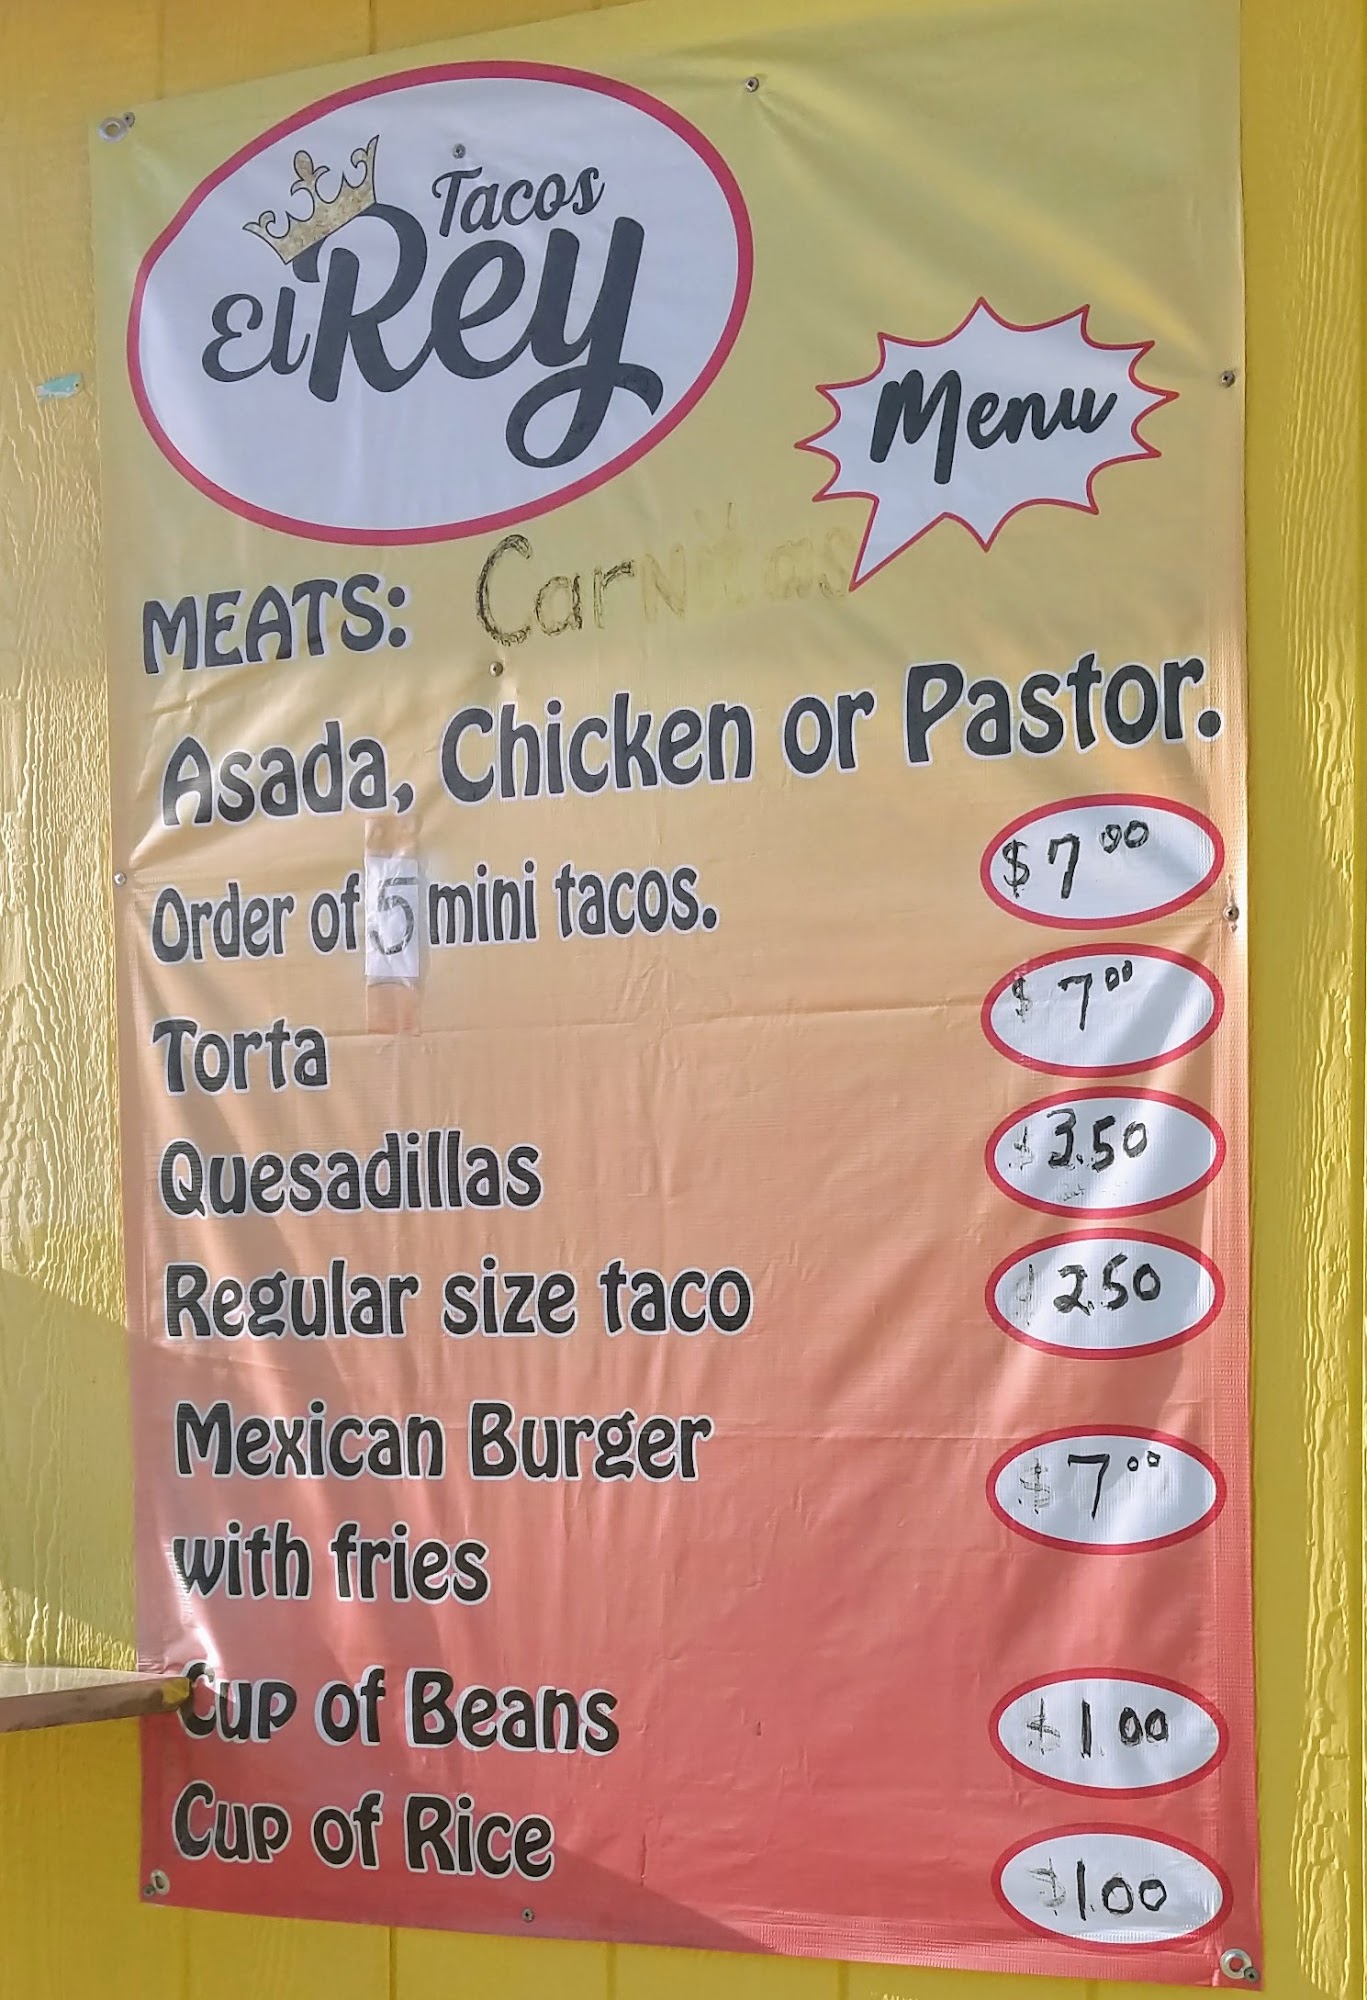 Tacos
El Rey
Menu
MEATS: Carnitas
Asada, Chicken or Pastor.
Order of 5 mini tacos. $7.00
Torta $7.00
Quesadillas $3.50
Regular size taco $2.50
Mexican Burger
with fries $7.00
Cup of Beans $1.00
Cup of Rice $1.00